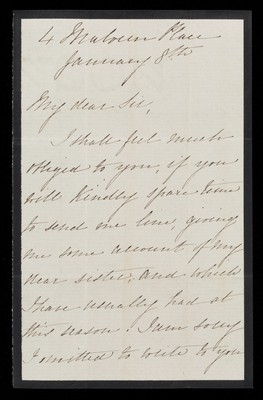 4 Malvern Place
January 8th
My dear Sir,
I shall feel much
obliged to you, if you
will kindly spare time
to send me line, giving
me some account of my
dear sister, and which
I have usually had at
this season. I am sorry
I omitted to write to you